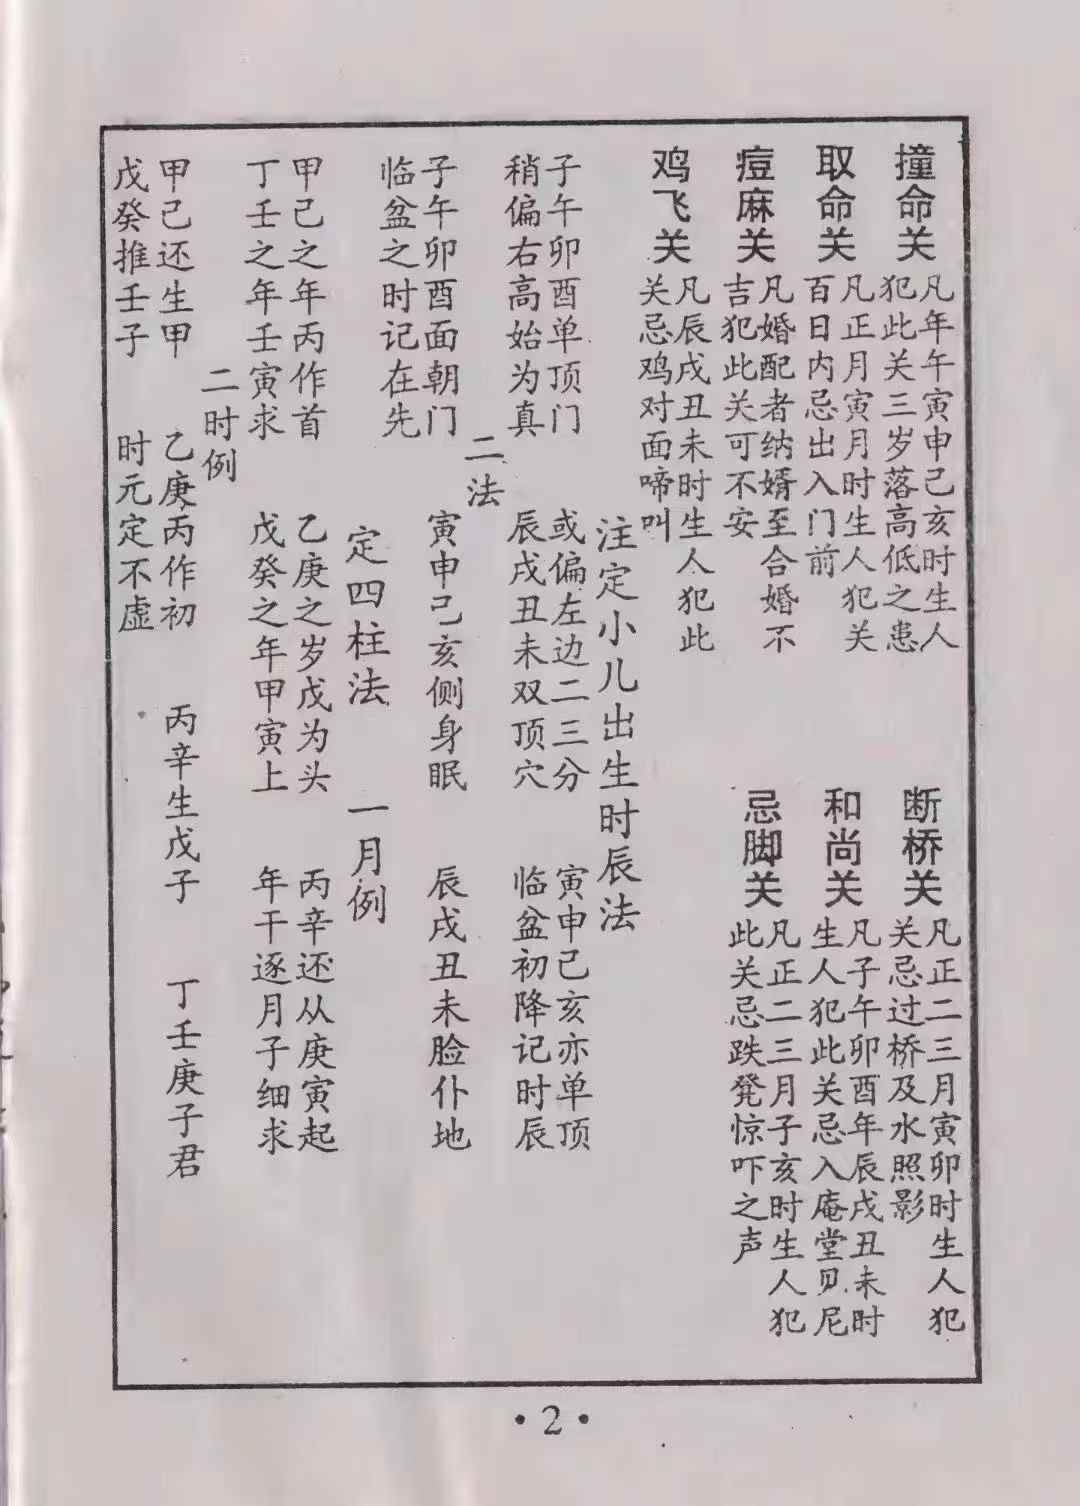 撞命关
凡年午寅申己亥时生人
犯此关三岁落高低之患
断桥关
凡正二三月寅卯时生人犯
关忌过桥及水照影
取命关
凡正月寅月时生人犯关
百日内忌出入门前
和尚关
凡子午卯酉年辰戌丑未时
生人犯此关忌入庵堂见尼
痘麻关
凡婚配者纳婿至合婚不
吉犯此关可不安
忌脚关
凡正二三月子亥时生人犯
此关忌跌凳惊吓之声
鸡飞关
凡辰戌丑未时生人犯此
关忌鸡对面啼叫
注定小儿出生时辰法
子午卯酉单顶门 或偏左边二三分 寅申己亥亦单顶
稍偏右高始为真 辰戌丑未双顶穴 临盆初降记时辰
二法
子午卯酉面朝门 寅申己亥侧身眠 辰戌丑未脸仆地
临盆之时记在先
定四柱法 一月例
甲己之年丙作首 乙庚之岁戊为头 丙辛还从庚寅起
丁壬之年壬寅求 戊癸之年甲寅上 年干逐月子细求
二时例
甲己还生甲 乙庚丙作初 丙辛生戊子 丁壬庚子君
戊癸推壬子 时元定不虚
·2·